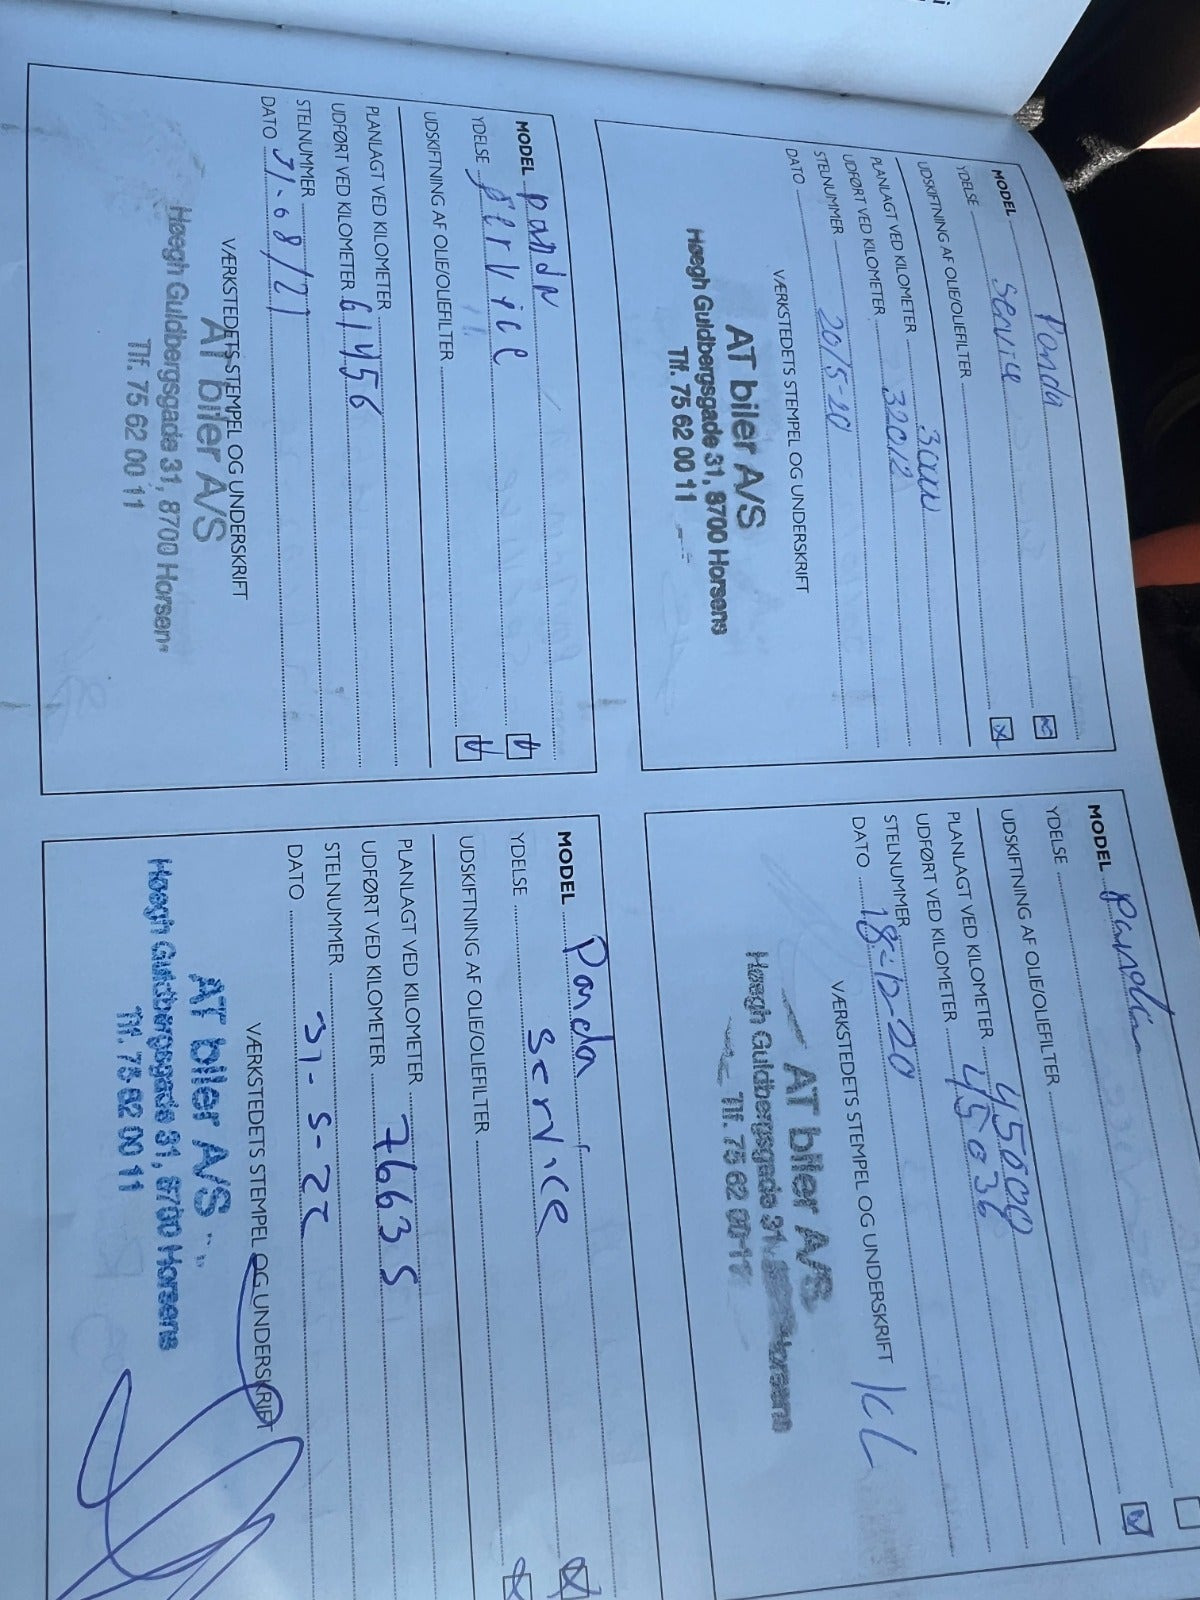 MODEL Panda
YDELSE service
UDSKIFTNING AF OLIE/OLIEFILTER
PLANLAGT VED KILOMETER
UDFØRT VED KILOMETER 32012
STELNUMMER
DATO 20/5-20
VÆRKSTEDETS STEMPEL OG UNDERSKRIFT
AT biler A/S
Høegh Guldbergsgade 31, 8700 Horsens
Tlf. 75 62 00 11
MODEL Panda
YDELSE
UDSKIFTNING AF OLIE/OLIEFILTER
PLANLAGT VED KILOMETER 45000
UDFØRT VED KILOMETER 45036
STELNUMMER
DATO 18-12-20
VÆRKSTEDETS STEMPEL OG UNDERSKRIFT KL
AT biler A/S
Høegh Guldbergsgade 31 Horsens
Tlf. 75 62 00 11
MODEL panda
YDELSE service
UDSKIFTNING AF OLIE/OLIEFILTER
PLANLAGT VED KILOMETER
UDFØRT VED KILOMETER 61456
STELNUMMER
DATO 31-08/21
VÆRKSTEDETS STEMPEL OG UNDERSKRIFT
AT biler A/S
Høegh Guldbergsgade 31, 8700 Horsens
Tlf. 75 62 00 11
MODEL Panda
YDELSE service
UDSKIFTNING AF OLIE/OLIEFILTER
PLANLAGT VED KILOMETER
UDFØRT VED KILOMETER 76635
STELNUMMER
DATO 31-5-22
VÆRKSTEDETS STEMPEL OG UNDERSKRIFT
AT biler A/S
Høegh Guldbergsgade 31, 8700 Horsens
Tlf. 75 62 00 11